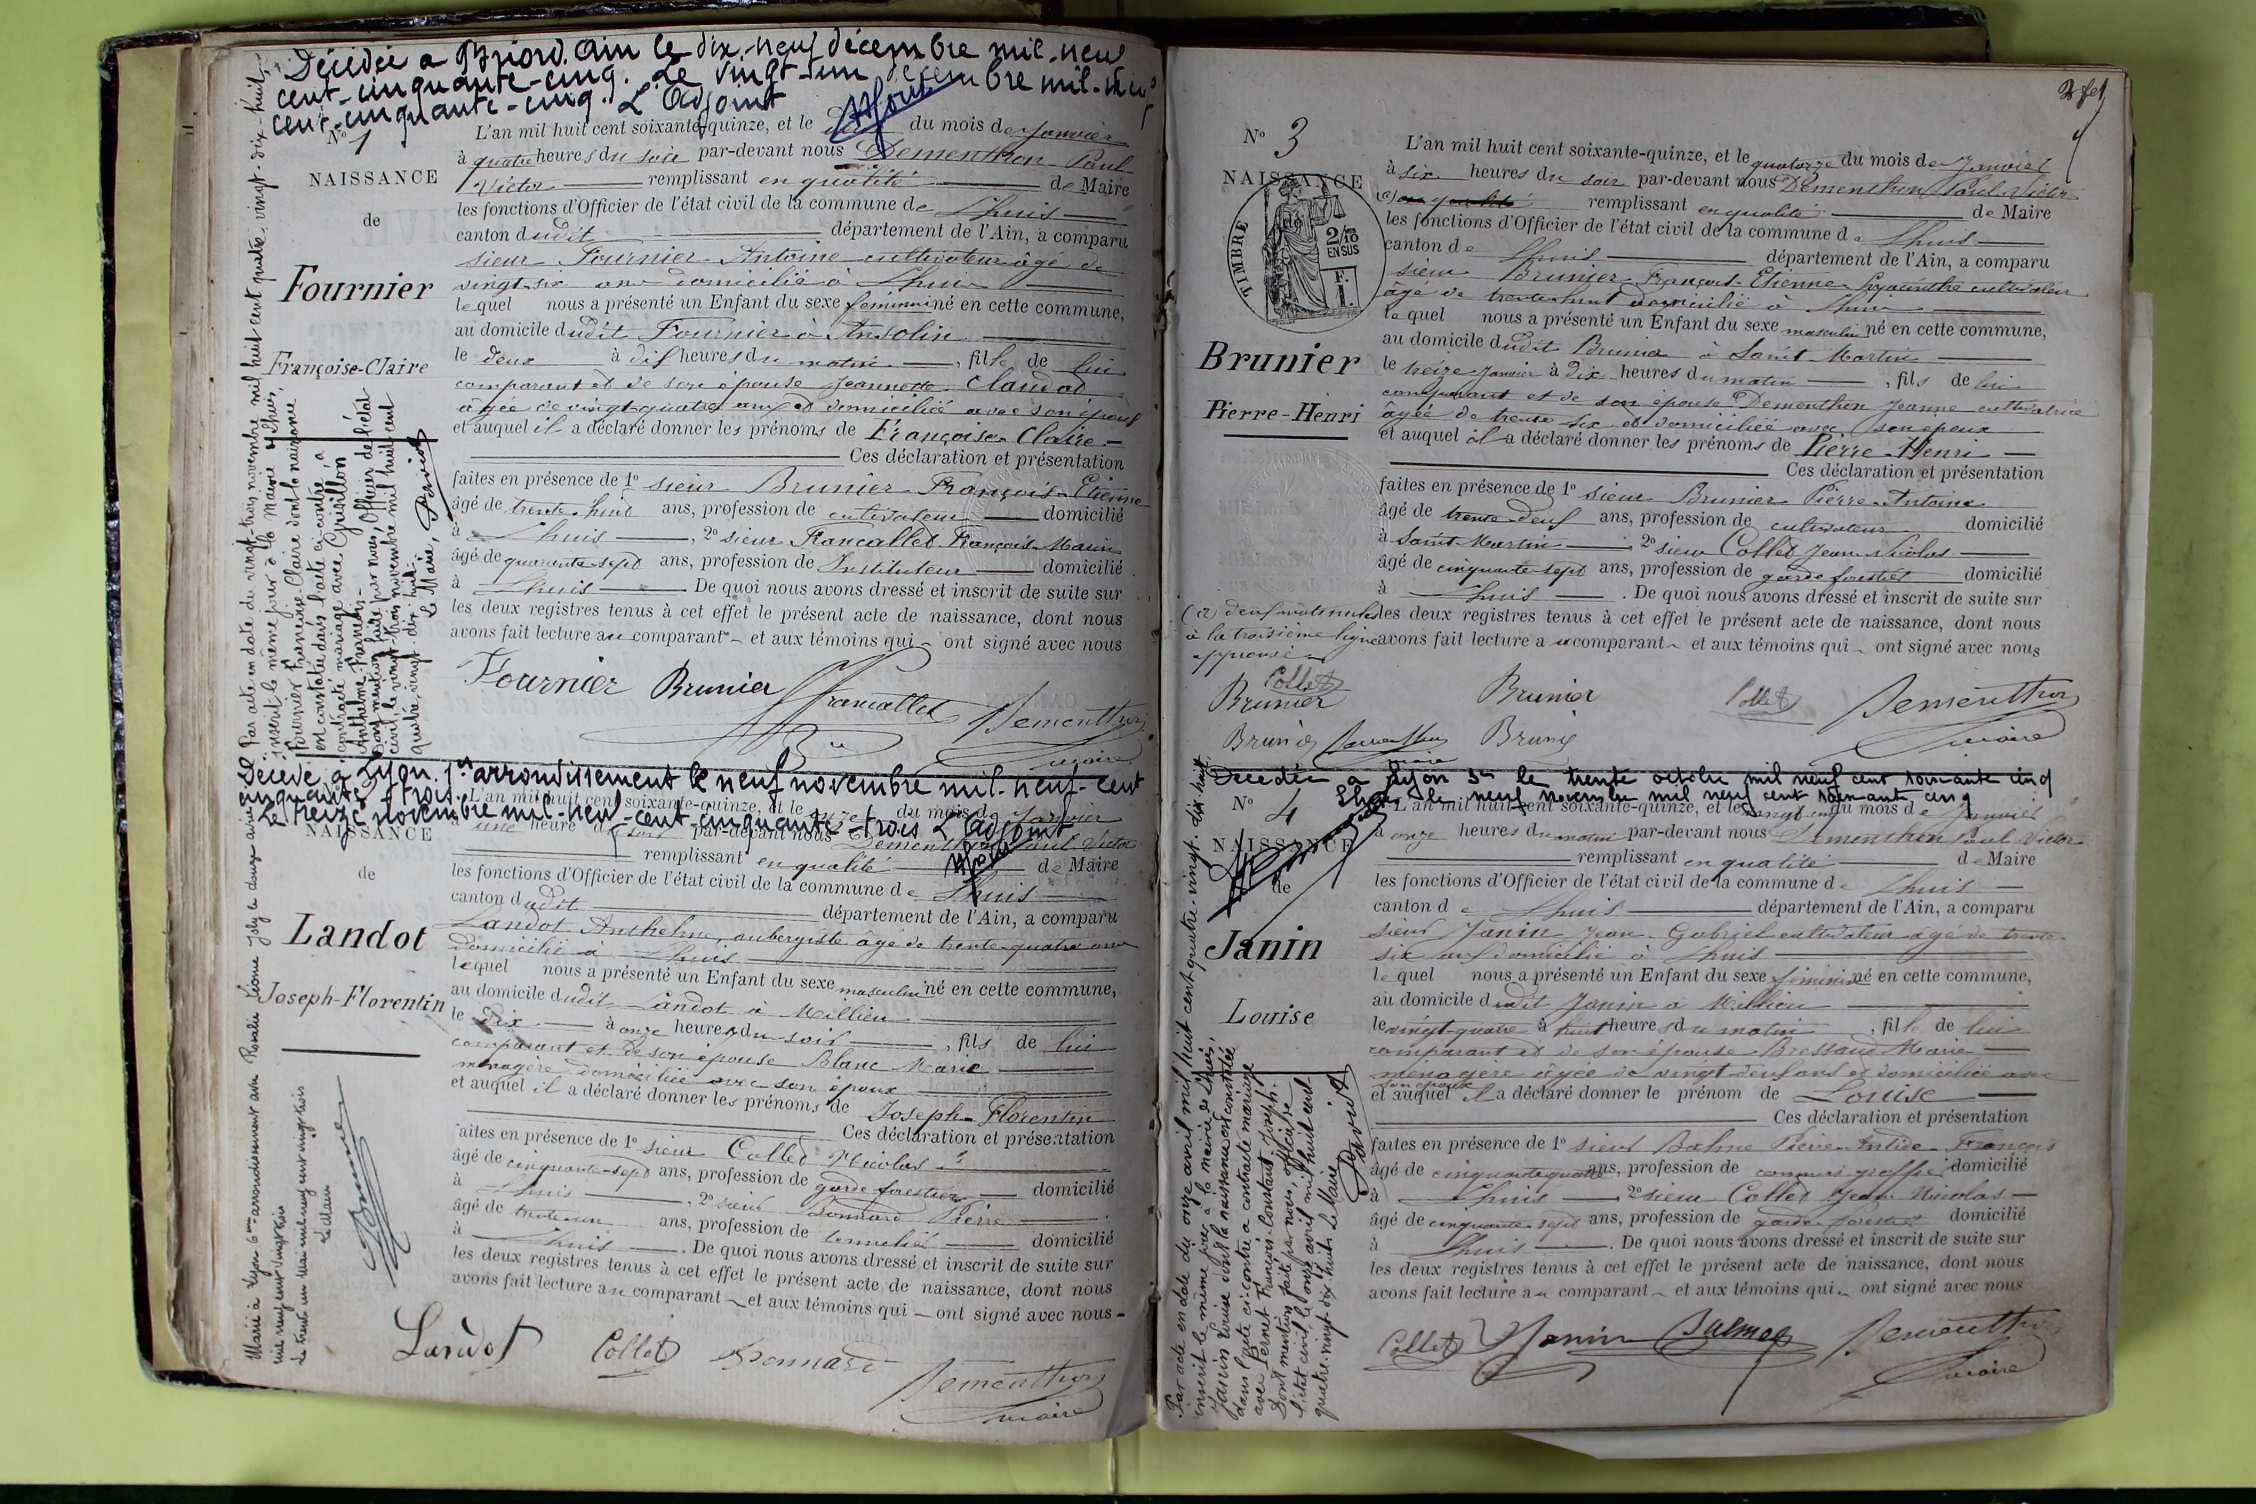 Décédée à Briord, Ain le dix-neuf décembre mil-neuf
cent-cinquante-cinq. Le vingt-un décembre mil-neuf
cent-cinquante-cinq. L'Adjoint
N° 1
NAISSANCE
de
Fournier
Françoise-Claire
L'an mil huit cent soixante-quinze, et le deux du mois de Janvier
à quatre heures du soir par-devant nous Dementhon Paul
Victor remplissant en qualité de Maire
les fonctions d'Officier de l'état civil de la commune de Lhuis
canton dudit département de l'Ain, a comparu
sieur Fournier Antoine cultivateur âgé de
vingt-six ans domicilié à Lhuis
lequel nous a présenté un Enfant du sexe féminin né en cette commune,
au domicile dudit Fournier à Ansolin
le deux à dix heures du matin, fille de lui
comparant et de son épouse Jeannette Claudot
âgée de vingt-quatre ans et domiciliée avec son époux
et auquel il a déclaré donner les prénoms de Françoise-Claire
Ces déclaration et présentation
faites en présence de 1° sieur Brunier François-Etienne
âgé de trente-huit ans, profession de cultivateur domicilié
à Lhuis, 2° sieur Francallet François-Marin
âgé de quarante-sept ans, profession de Instituteur domicilié
à Lhuis. De quoi nous avons dressé et inscrit de suite sur
les deux registres tenus à cet effet le présent acte de naissance, dont nous
avons fait lecture au comparant et aux témoins qui ont signé avec nous
Fournier Brunier Francallet Dementhon
maire
Par acte en date du vingt-trois novembre mil huit cent quatre-vingt-dix-huit,
inscrit le même jour à la mairie de Lhuis,
Fournier Françoise-Claire dont la naissance
est constatée dans l'acte ci-contre, a
contracté mariage avec Grisillon
Anthelme-François.
Dont mention faite par nous, Officier de l'état
civil, le vingt-trois novembre mil huit cent
quatre-vingt-dix-huit.
Le Maire,
Décédé à Lyon 1er arrondissement le neuf novembre mil-neuf-cent
cinquante-trois.
Le treize novembre mil-neuf-cent-cinquante-trois L'Adjoint
NAISSANCE
de
Landot
Joseph-Florentin
L'an mil huit cent soixante-quinze, et le onze du mois de Janvier
à une heure du soir par-devant nous Dementhon Paul Victor
remplissant en qualité de Maire
les fonctions d'Officier de l'état civil de la commune de Lhuis
canton dudit département de l'Ain, a comparu
Landot Anthelme, aubergiste âgé de trente-quatre ans
domicilié à Lhuis
lequel nous a présenté un Enfant du sexe masculin né en cette commune,
au domicile dudit Landot à Millieu
le Dix à onze heures du soir, fils de lui
comparant et de son épouse Blanc Marie
ménagère domiciliée avec son époux
et auquel il a déclaré donner les prénoms de Joseph-Florentin
Ces déclaration et présentation
faites en présence de 1° sieur Collet Nicolas
âgé de cinquante-sept ans, profession de garde forestier domicilié
à Lhuis, 2° sieur Bonnard Pierre
âgé de trente-un ans, profession de tonnelier domicilié
à Lhuis. De quoi nous avons dressé et inscrit de suite sur
les deux registres tenus à cet effet le présent acte de naissance, dont nous
avons fait lecture au comparant et aux témoins qui ont signé avec nous
Landot Collet Bonnard Dementhon
maire
Marié à Lyon 6me arrondissement avec Rosalie Léonie Joly le douze avril
mil neuf cent vingt trois
Le trente un Mai mil neuf cent vingt trois
Le Maire
N° 3
NAISSANCE
de
TIMBRE
2/10
EN SUS
F.
1.
Brunier
Pierre-Henri
L'an mil huit cent soixante-quinze, et le quatorze du mois de Janvier
à six heures du soir par-devant nous Dementhon Paul-Victor
(a) en qualité remplissant en qualité de Maire
les fonctions d'Officier de l'état civil de la commune de Lhuis
canton de Lhuis département de l'Ain, a comparu
sieur Brunier François-Etienne-Hyacinthe cultivateur
âgé de trente-huit domicilié à Lhuis
lequel nous a présenté un Enfant du sexe masculin né en cette commune,
au domicile dudit Brunier à Saint-Martin
le treize Janvier à dix heures du matin, fils de lui
comparant et de son épouse Dementhon Jeanne cultivatrice
âgée de trente six et domiciliée avec son époux
et auquel il a déclaré donner les prénoms de Pierre-Henri
Ces déclaration et présentation
faites en présence de 1° sieur Brunier Pierre-Antoine
âgé de trente-deux ans, profession de cultivateur domicilié
à Saint-Martin 2° sieur Collet Jean-Nicolas
âgé de cinquante-sept ans, profession de garde forestier domicilié
à Lhuis. De quoi nous avons dressé et inscrit de suite sur
les deux registres tenus à cet effet le présent acte de naissance, dont nous
avons fait lecture au comparant et aux témoins qui ont signé avec nous
(a) deux mots nuls
à la troisième ligne
approuvé
Collet
Brunier Brunier Collet Dementhon
Brunier Dementhon Brunier maire
maire
Décédée à Lyon 3e le trente octobre mil neuf cent soixante cinq
Lhuis le neuf novembre mil neuf cent soixante cinq
N° 4
NAISSANCE
de
Janin
Louise
L'an mil huit cent soixante-quinze, et le vingt cinq du mois de Janvier
à onze heures du matin par-devant nous Dementhon Paul Victor
remplissant en qualité de Maire
les fonctions d'Officier de l'état civil de la commune de Lhuis
canton de Lhuis département de l'Ain, a comparu
sieur Janin Jean-Gabriel cultivateur âgé de trente-
six ans domicilié à Lhuis
lequel nous a présenté un Enfant du sexe féminin né en cette commune,
au domicile dudit Janin à Millieu
le vingt-quatre à huit heures du matin, fille de lui
comparant et de son épouse Bressand Marie
ménagère âgée de vingt-deux ans et domiciliée avec
son époux
et auquel il a déclaré donner le prénom de Louise
Ces déclaration et présentation
faites en présence de 1° sieur Balme Pierre-Antide-François
âgé de cinquante quatre ans, profession de commis greffier domicilié
à Lhuis 2° sieur Collet Jean Nicolas
âgé de cinquante-sept ans, profession de garde forestier domicilié
à Lhuis. De quoi nous avons dressé et inscrit de suite sur
les deux registres tenus à cet effet le présent acte de naissance, dont nous
avons fait lecture au comparant et aux témoins qui ont signé avec nous
Collet Janin Balme Dementhon
maire
Par acte en date du onze avril mil huit cent quatre-vingt-dix-huit,
inscrit le même jour à la mairie de Lhuis,
Janin Louise dont la naissance est constatée
dans l'acte ci-contre a contracté mariage
avec Pernet François-Constant-Joseph.
Dont mention faite par nous, officier de
l'état civil, le onze avril mil huit cent
quatre-vingt-dix-huit. Le Maire